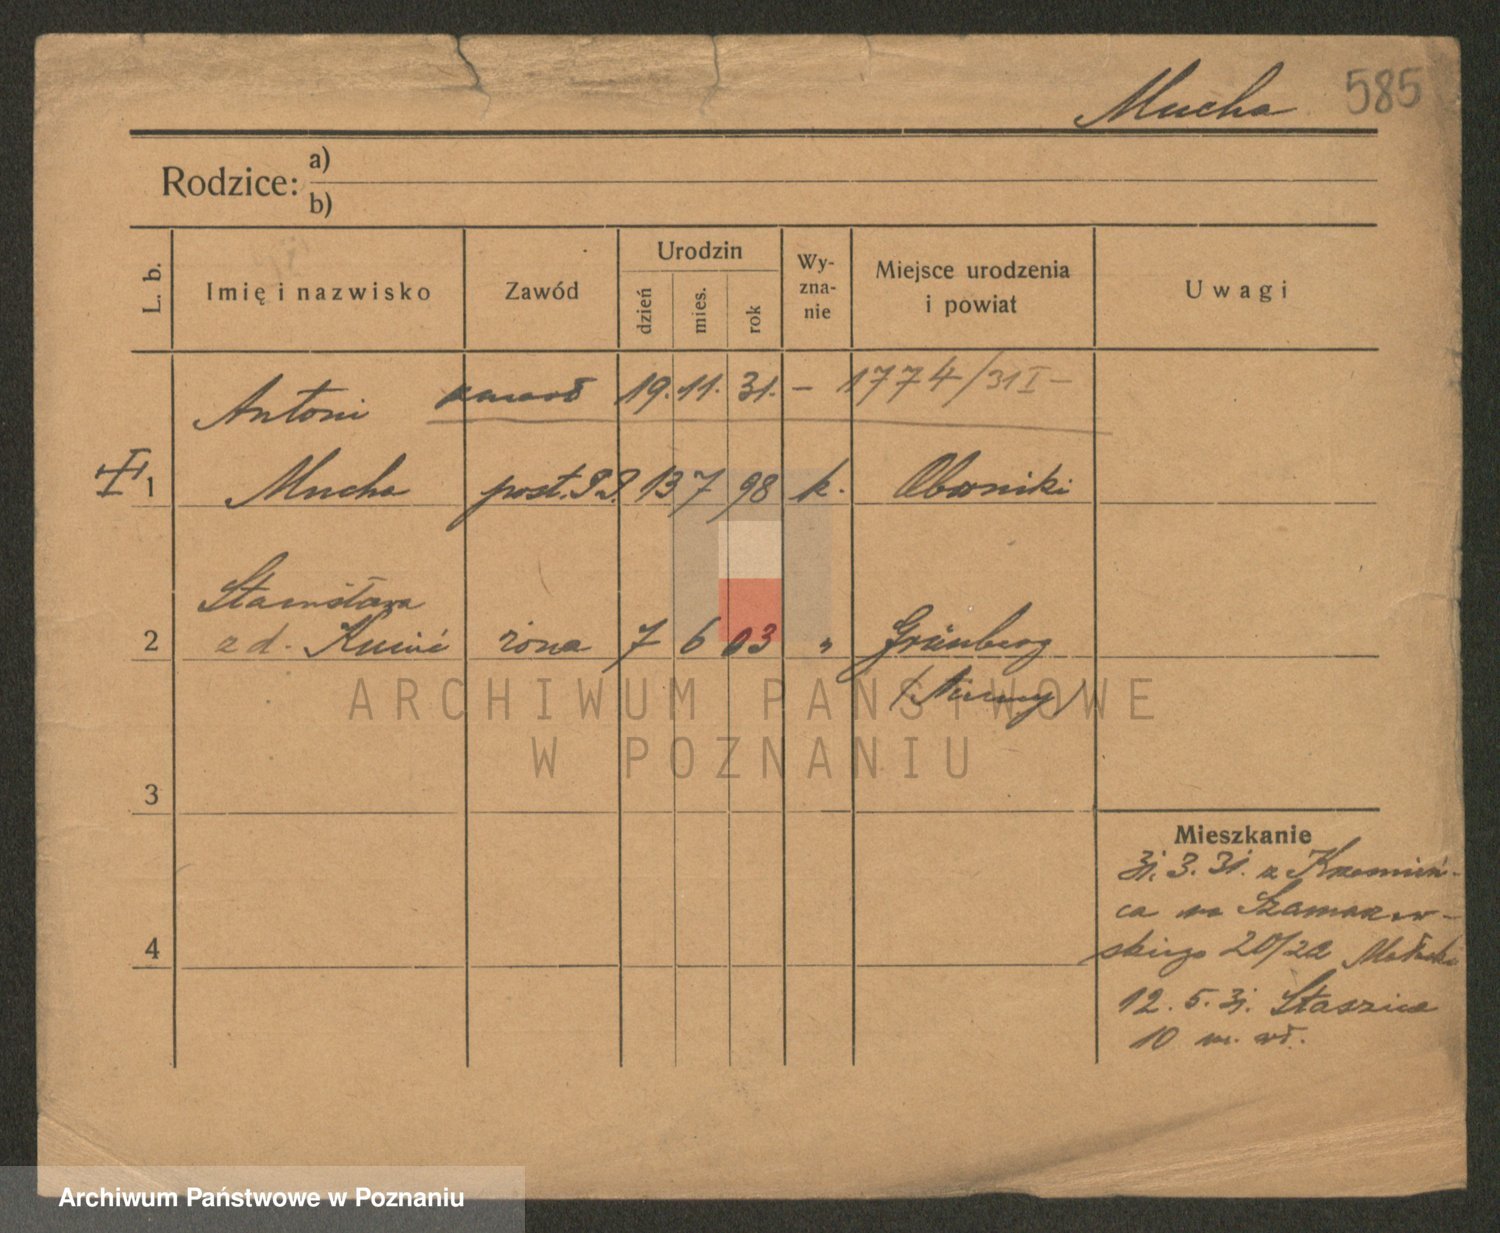 Mucha 585
Rodzice: a)
b)
L. b. Imię i nazwisko Zawód Urodzin dzień mies. rok Wy-zna-nie Miejsce urodzenia i powiat Uwagi
Antoni zmarł 19. 11. 31. – 1774/31 I –
1 Mucha post. P.P. 13 7 98 k. Oborniki
Stanisława
2 z d. żona 7 6 03 " Grünberg
(Niemcy)
ARCHIWUM PAŃSTWOWE
W POZNANIU
3
Mieszkanie
31. 3. 31. z Krzemień-
ca na Szamarzew-
4 skiego 20/22
12. 5. 31. Staszica
10 m. wł.
Archiwum Państwowe w Poznaniu